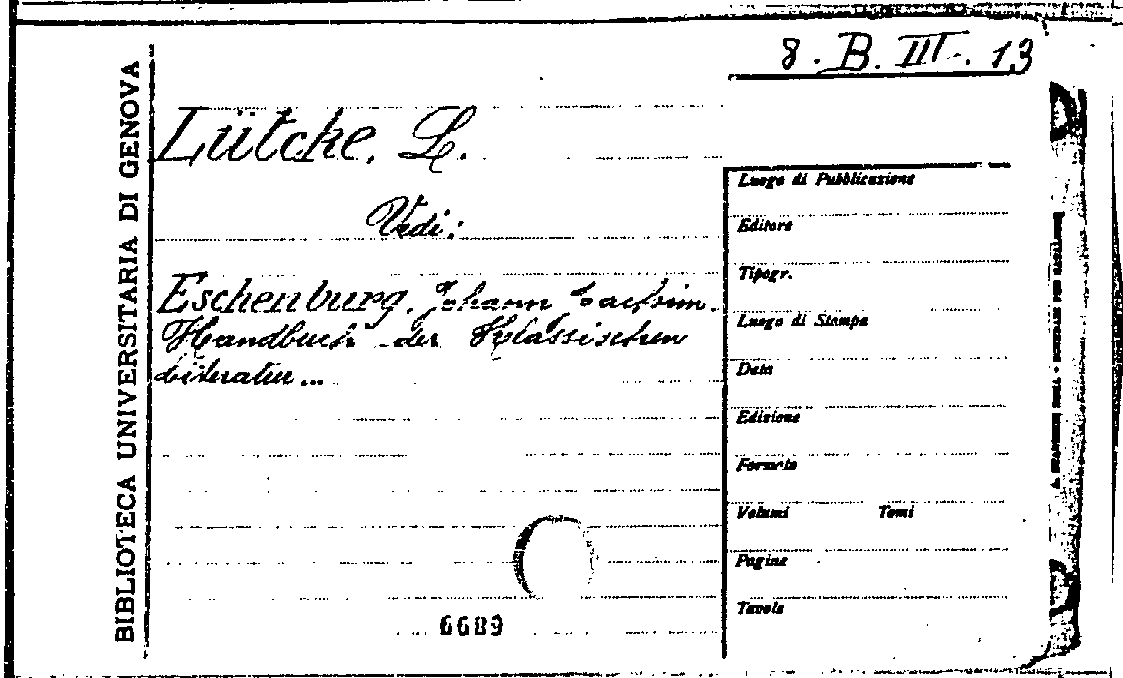 8. B. III. 13
BIBLIOTECA UNIVERSITARIA DI GENOVA
Lütcke, L.
Vedi:
Eschenburg, Johann Joachim.
Handbuch der Klassischen
Literatur...
6689
Luogo di Pubblicazione
Editore
Tipogr.
Luogo di Stampa
Data
Edizione
Formato
Volumi Tomi
Pagine
Tavole